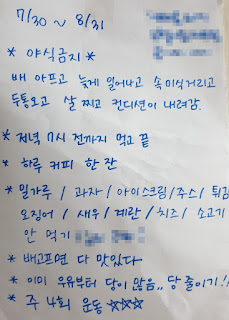 7/30 ~ 8/31
* 야식금지 *
배 아프고 늦게 일어나고 속 미식거리고
두통오고 살 찌고 컨디션이 내려감.
* 저녁 7시 전까지 먹고 끝
* 하루 커피 한 잔
* 밀가루 / 과자 / 아이스크림 / 주스 / 튀김
오징어 / 새우 / 계란 / 치즈 / 소고기
안 먹기
* 배고프면 다 맛있다
* 이미 우유부터 당이 많음.. 당 줄이기!!
* 주 4회 운동 ☆☆☆